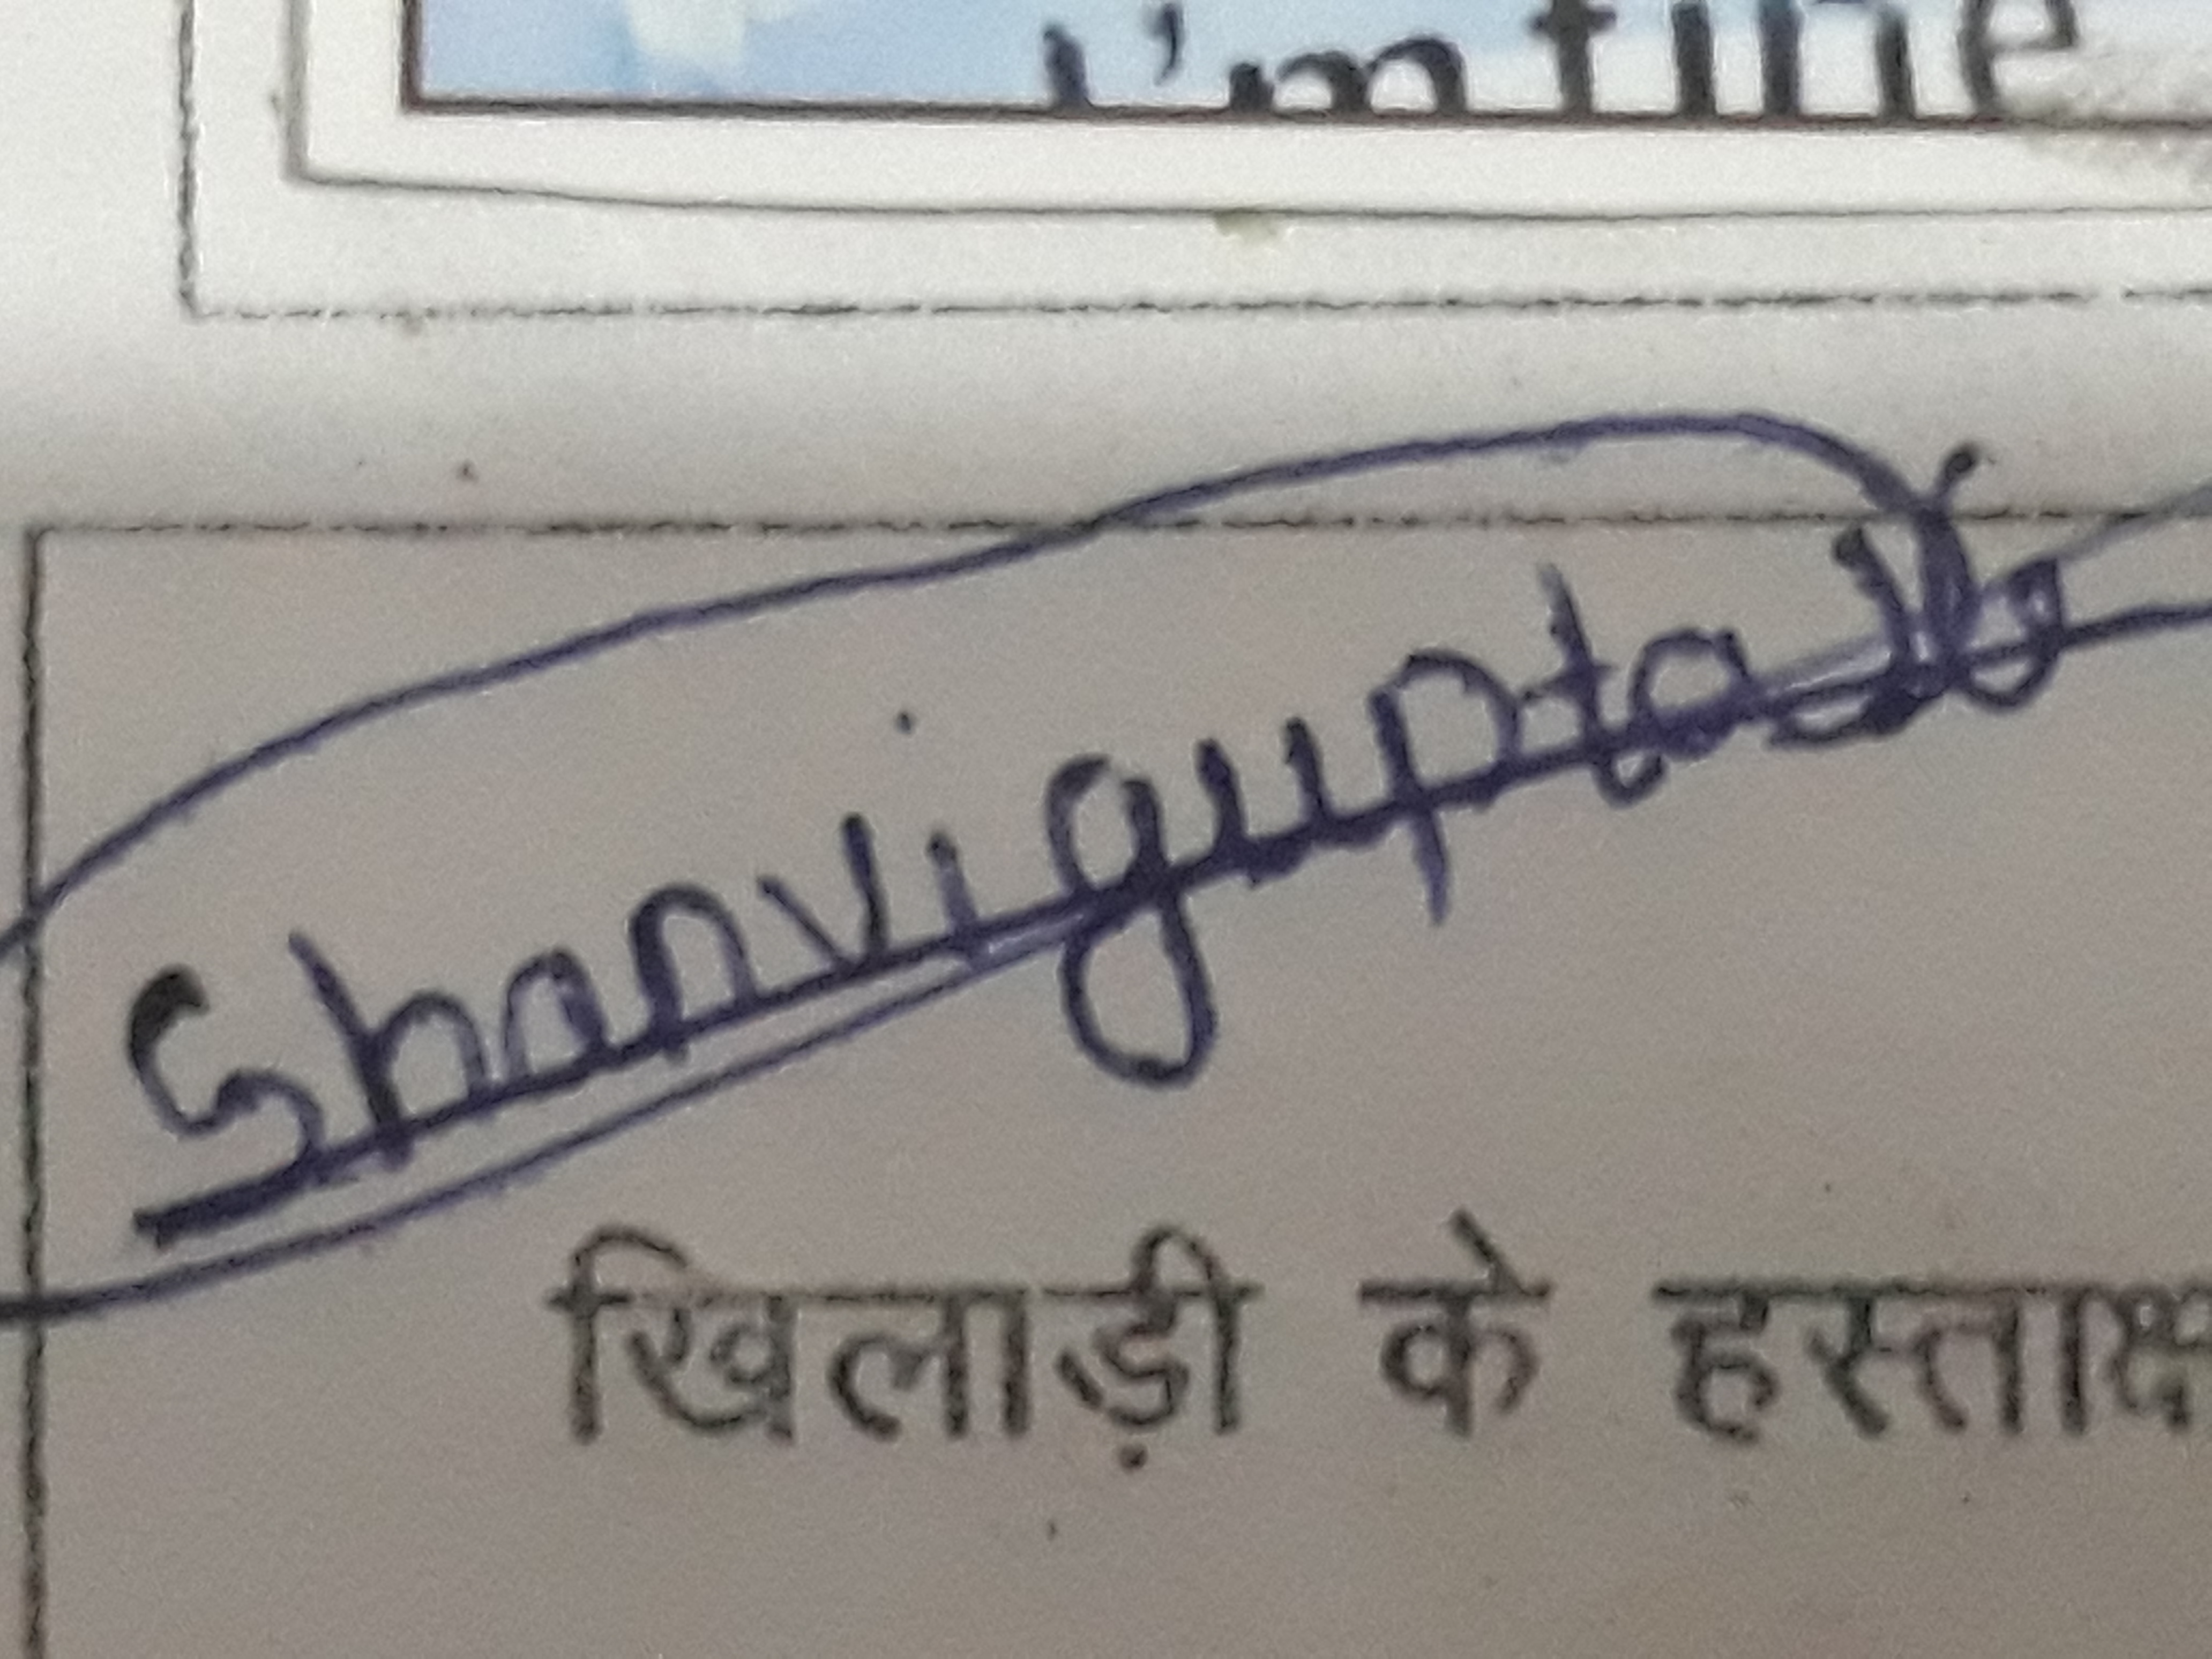 I'm fine
Shanvi gupta
खिलाड़ी के हस्ताक्ष